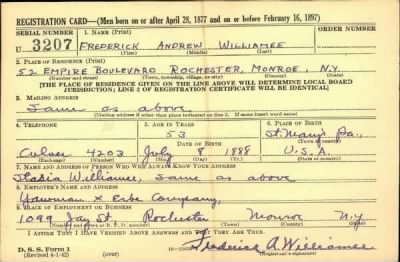 REGISTRATION CARD—(Men born on or after April 28, 1877 and on or before February 16, 1897)
SERIAL NUMBER
1. NAME (Print)
U 3207
FREDERICK ANDREW WILLIAMEE
(First) (Middle) (Last)
2. PLACE OF RESIDENCE (Print)
52 EMPIRE BOULEVARD ROCHESTER, MONROE, N.Y.
(Number and street) (Town, township, village, or city) (County) (State)
[THE PLACE OF RESIDENCE GIVEN ON THE LINE ABOVE WILL DETERMINE LOCAL BOARD
JURISDICTION; LINE 2 OF REGISTRATION CERTIFICATE WILL BE IDENTICAL]
3. MAILING ADDRESS
Same as above
[Mailing address if other than place indicated on line 2. If same insert word same]
4. TELEPHONE
5. AGE IN YEARS
6. PLACE OF BIRTH
53
St. Marys Pa.,
DATE OF BIRTH
(Town or county)
Culver 4203 July 8 1888 U.S.A.
(Exchange) (Number) (Mo.) (Day) (Yr.) (State or country)
7. NAME AND ADDRESS OF PERSON WHO WILL ALWAYS KNOW YOUR ADDRESS
Williamee, same as above
8. EMPLOYER'S NAME AND ADDRESS
Yawman & Erbe Company,
9. PLACE OF EMPLOYMENT OR BUSINESS
1099 Jay St. Rochester Monroe N.Y.
(Number and street or R. F. D. number) (Town) (County) (State)
I AFFIRM THAT I HAVE VERIFIED ABOVE ANSWERS AND THAT THEY ARE TRUE.
D. S. S. Form 1
(Revised 4-1-42) (over)
Frederick A. Williamee
(Registrant's signature)